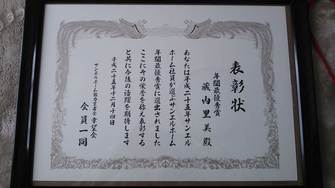 表彰状
年間最優秀賞
蔵内里美殿
あなたは平成二十五年サンエル
ホーム社員が選ぶサンエルホーム
年間最優秀賞に選出されました
ここにその栄誉を称え表彰する
と共に今後の活躍を期待します
平成二十五年十二月十四日
会員一同